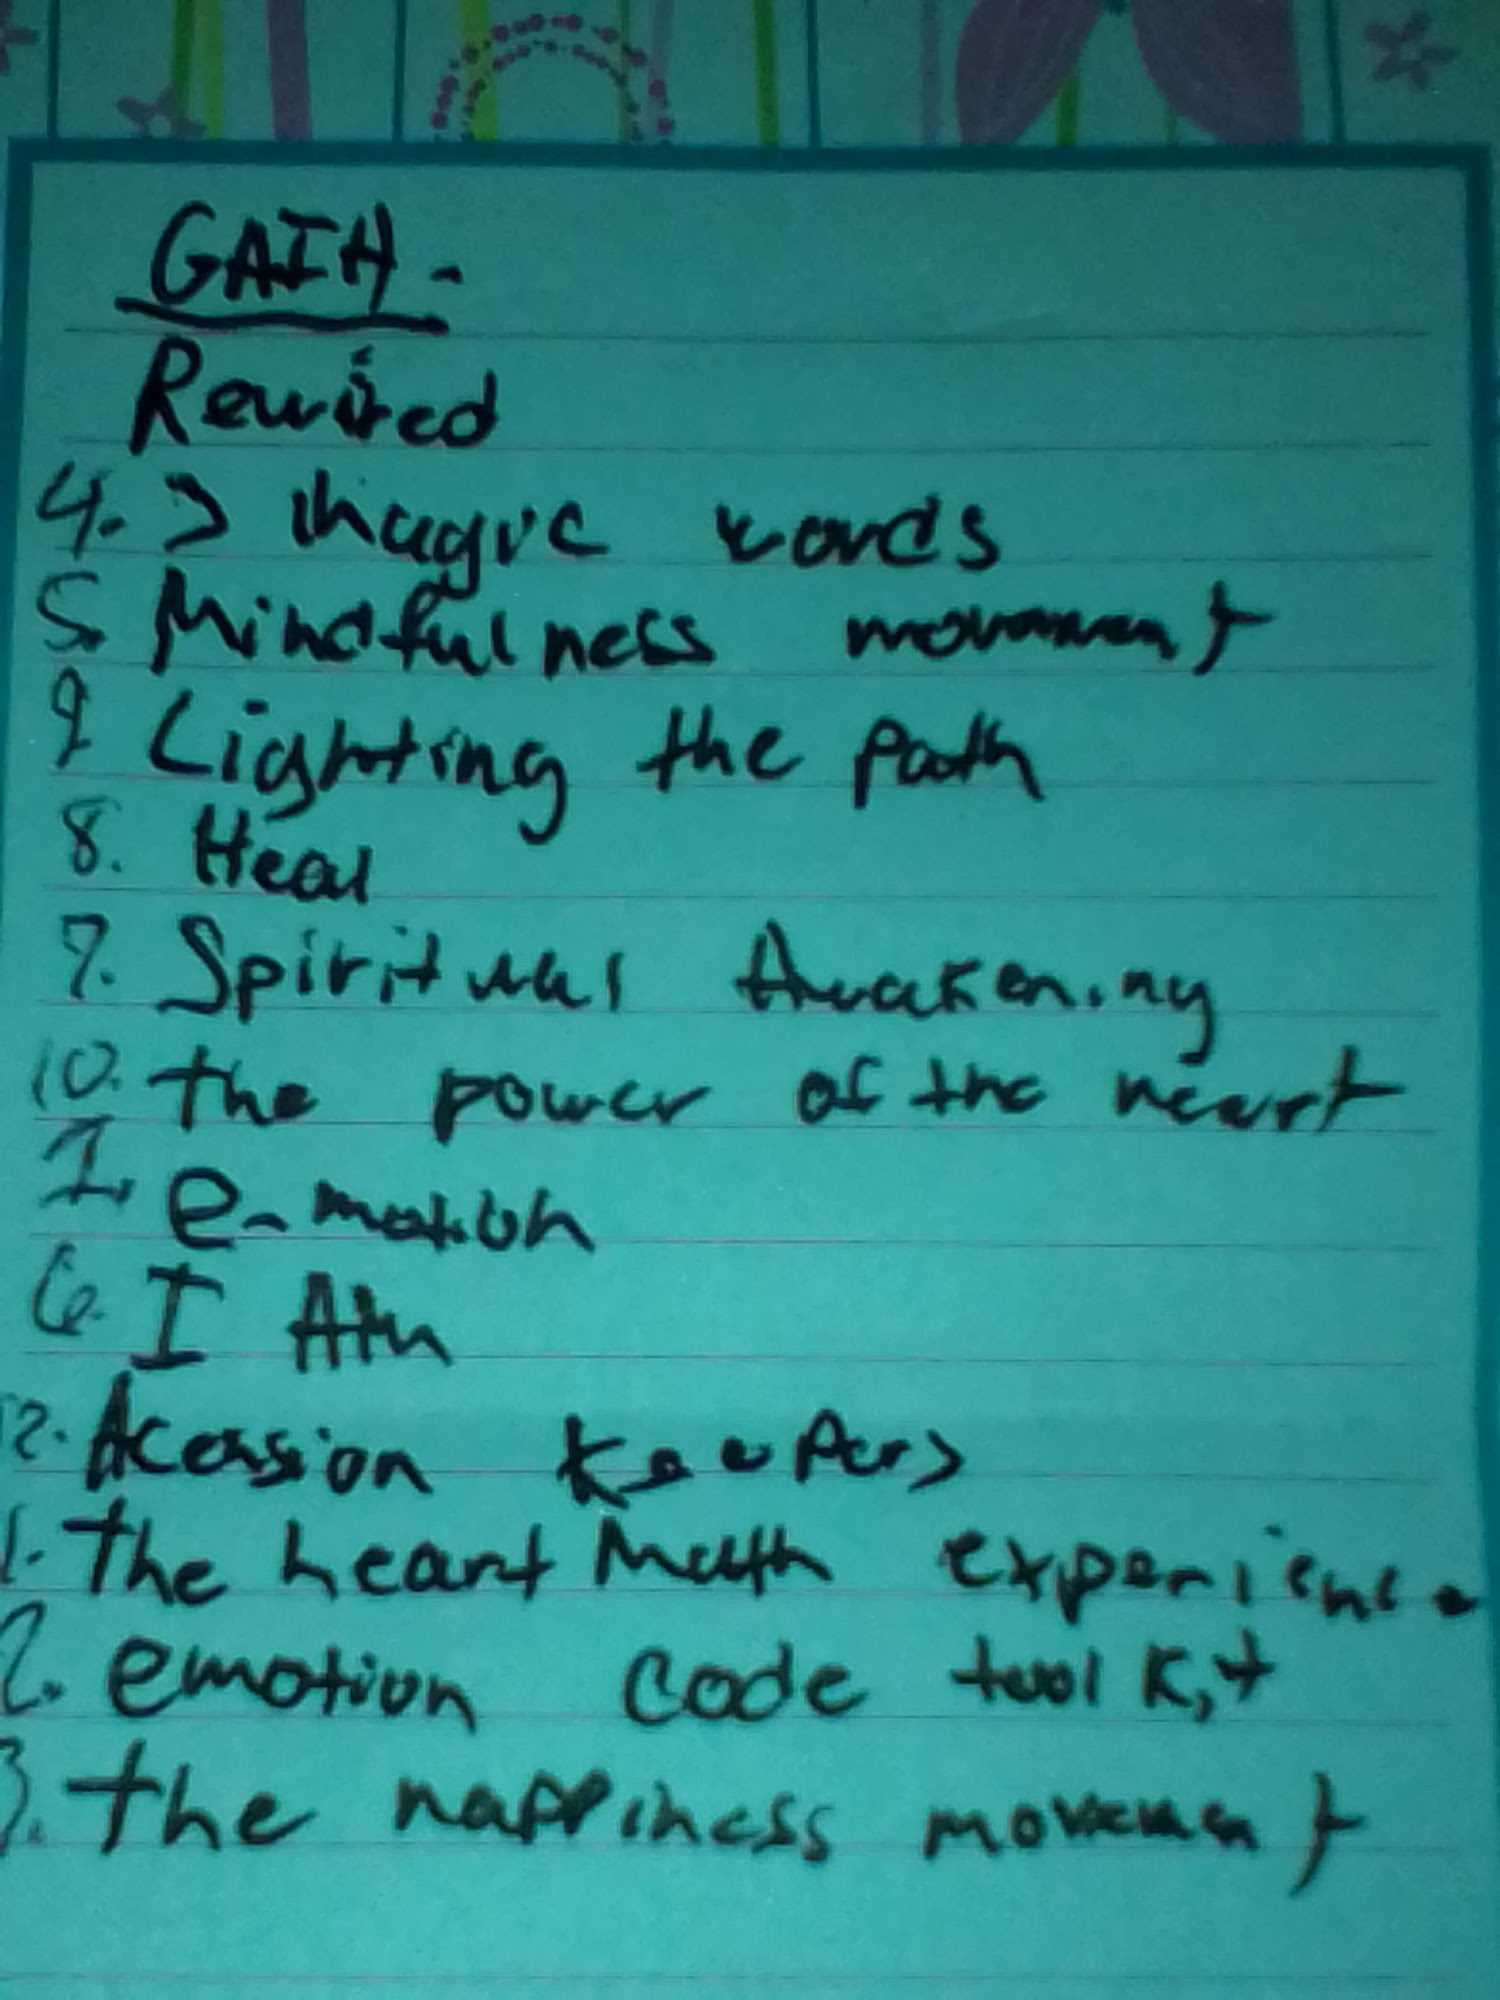 GAIA -
Rewired
4. 3 magic words
5. Mindfulness movement
9 Lighting the path
8. Heal
7. Spiritual Awakening
10. the power of the heart
1. e-motion
6. I Am
2. Acension Keepers
1. the heart Math experience
2. emotion code tool kit
3. the happiness movement